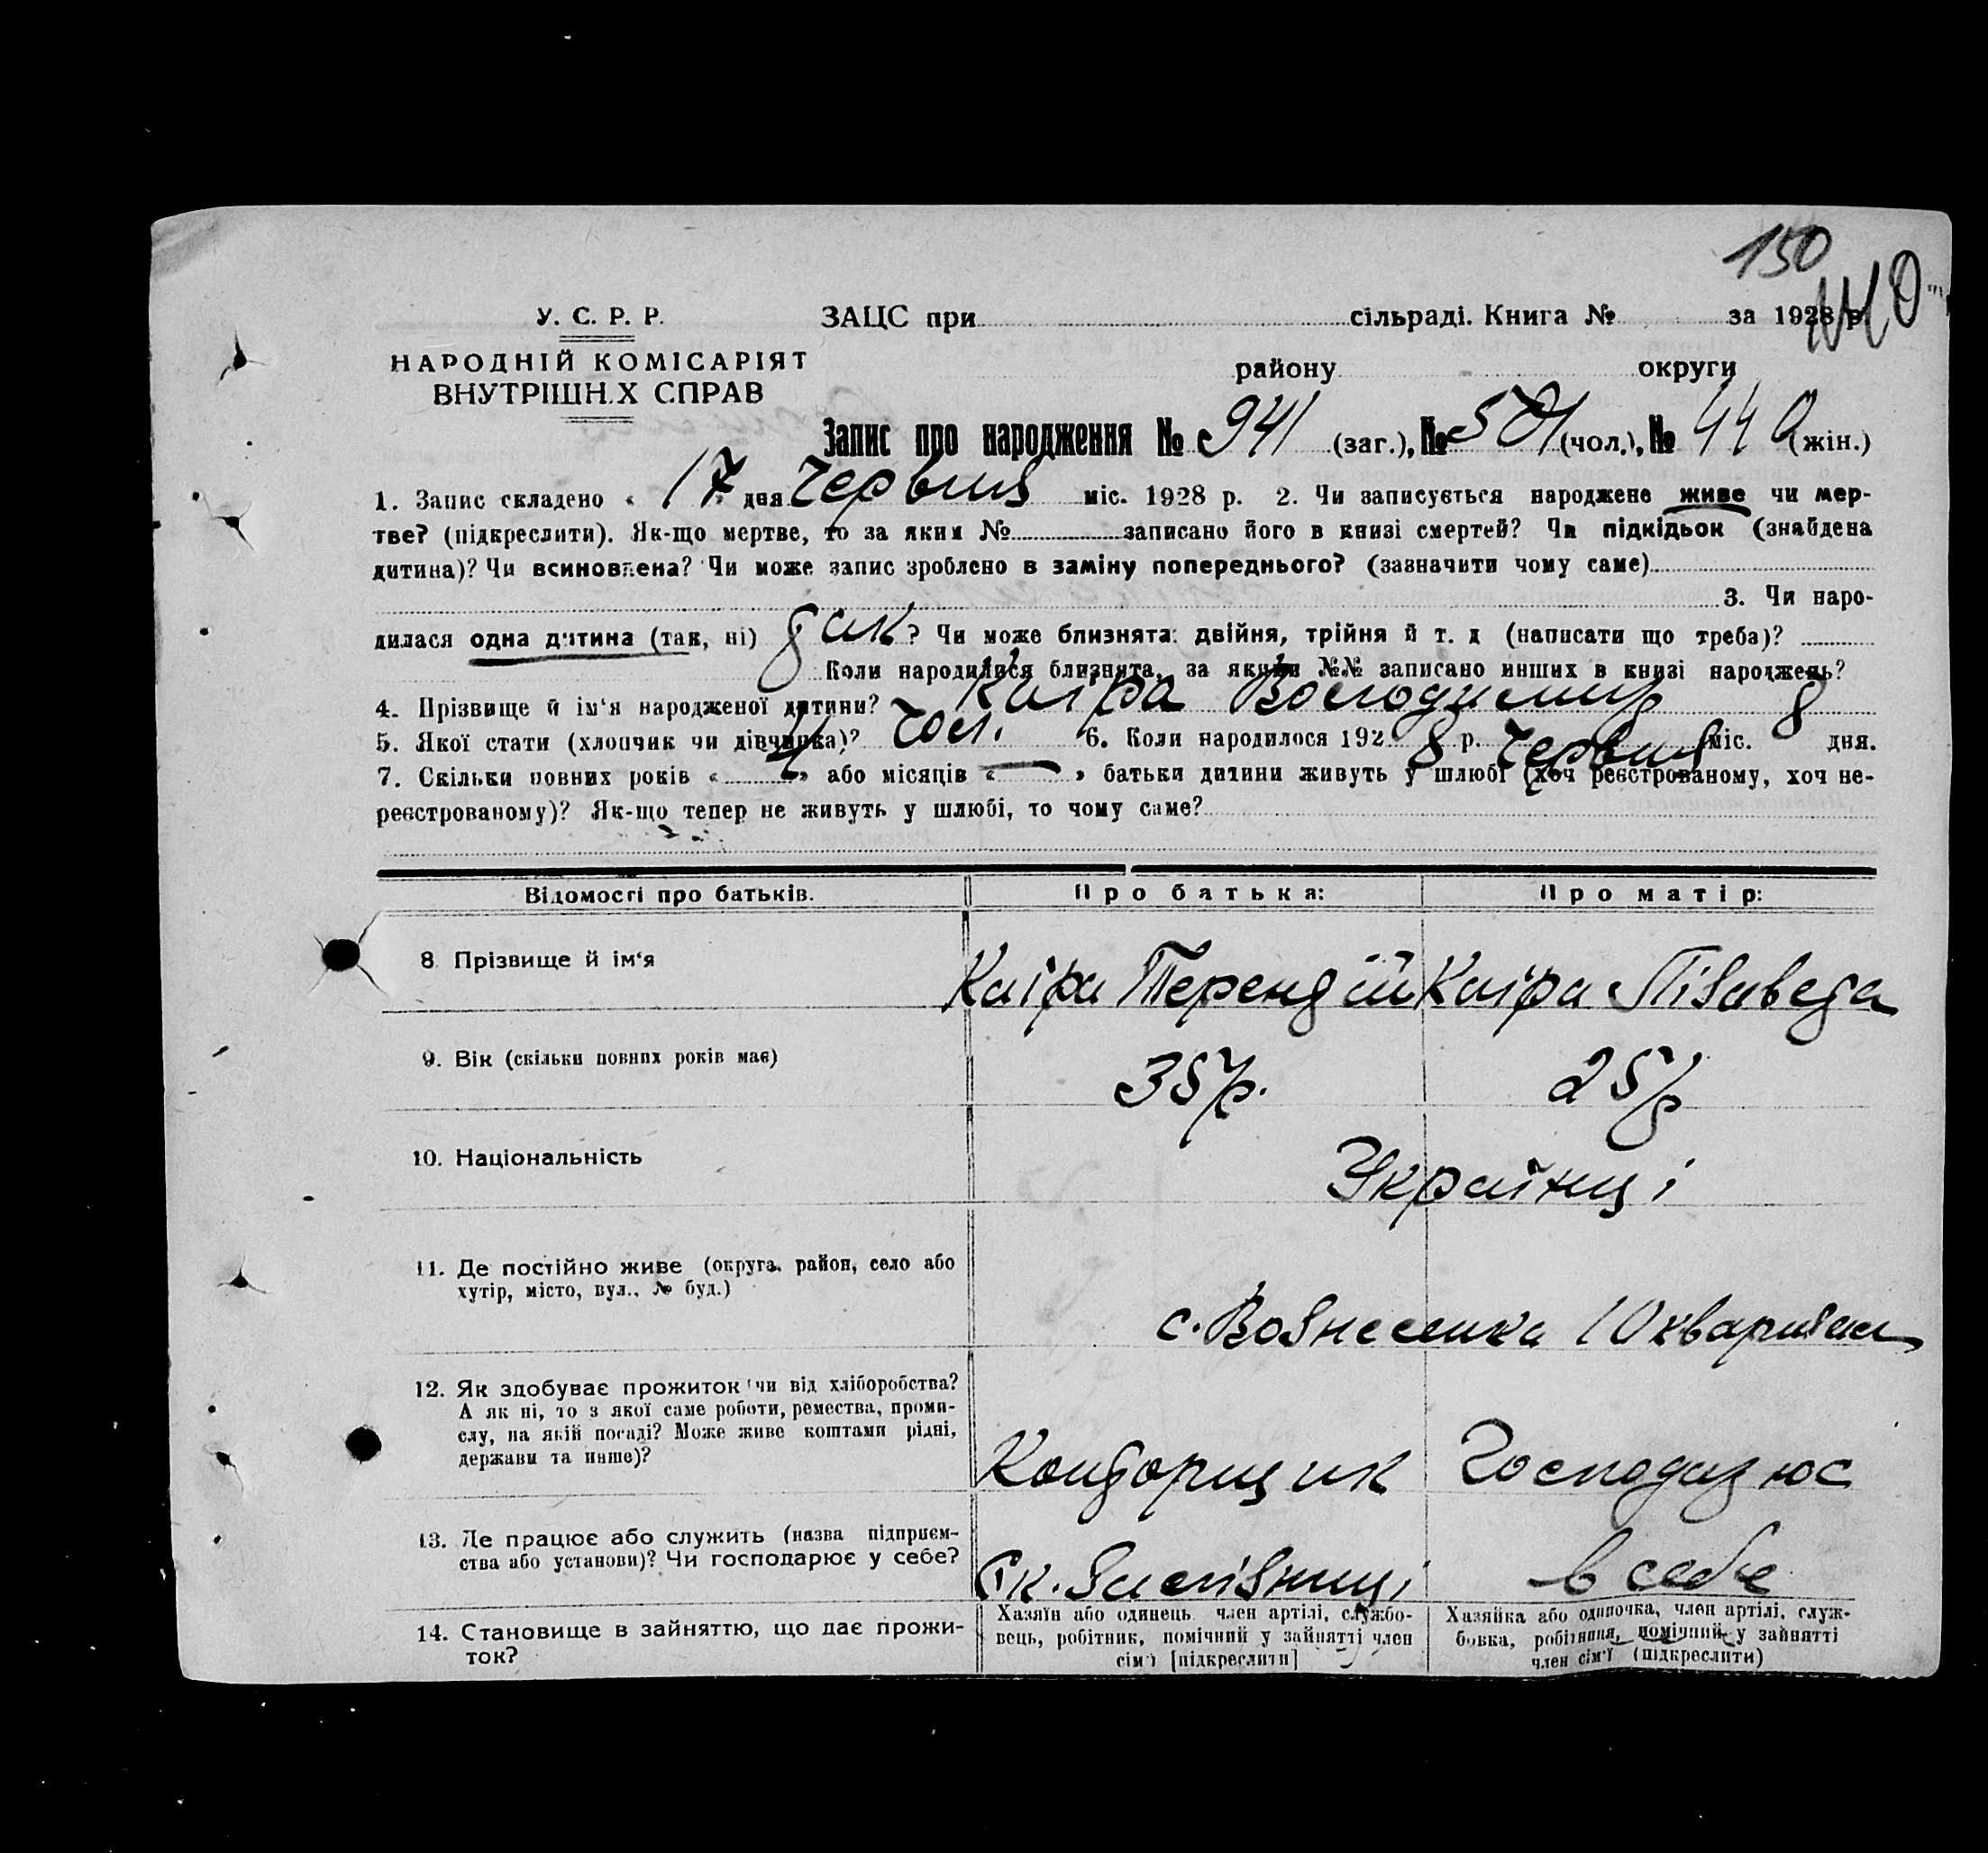 150
440
У. С. Р. Р. ЗАЦС при сільраді. Книга № за 1928 р.
НАРОДНІЙ КОМІСАРІЯТ району округи
ВНУТРІШН.Х СПРАВ
Запис про народження № 941 (заг.), № 501 (чол.), № 440 (жін.)
1. Запис складено « 17 » дня Червня міс. 1928 р. 2. Чи записується народжене живе чи мер-
тве? (підкреслити). Як-що мертве, то за яким № записано його в книзі смертей? Чи підкідьок (знайдена
дитина)? Чи всиновлена? Чи може запис зроблено в заміну попереднього? (зазначити чому саме)
3. Чи наро-
дилася одна дитина (так, ні) так? Чи може близнята: двійня, трійня й т. д (написати що треба)?
Коли народилися близнята, за якими №№ записано инших в книзі народжень?
4. Прізвище й ім'я народженої дитини? Каіра Володимир
5. Якої стати (хлопчик чи дівчинка)? Чол. 6. Коли народилося 1928 р. Червня міс. 8 дня.
7. Скільки повних років « 4 » або місяців « — » батьки дитини живуть у шлюбі (хоч реєстрованому, хоч не-
реєстрованому)? Як-що тепер не живуть у шлюбі, то чому саме?
Відомості про батьків. Про батька: Про матір:
8 Прізвище й ім'я Каіра Терентій Каіра Лізавета
9. Вік (скільки повних років має) 35 р. 25 р
10. Національність Українці
11. Де постійно живе (округа, район, село або
хутір, місто, вул., № буд.)
с. Вознесенка 10 квартал
12. Як здобуває прожиток чи від хліборобства?
А як ні, то з якої саме роботи, ремества, проми-
слу, на якій посаді? Може живе коштами рідні,
держави та инше)?
Конторщик Господарює
13. Де працює або служить (назва підприєм-
ства або установи)? Чи господарює у себе?
Єк. Залізниці в себе
14. Становище в зайняттю, що дає прожи-
ток?
Хазяїн або одинець член артілі, службо-
вець, робітник, помічний у зайнятті член
сім'ї [підкреслити]
Хазяйка або одиночка, член артілі, служ-
бовка, робітниця, помічний у зайнятті
член сім'ї (підкреслити)